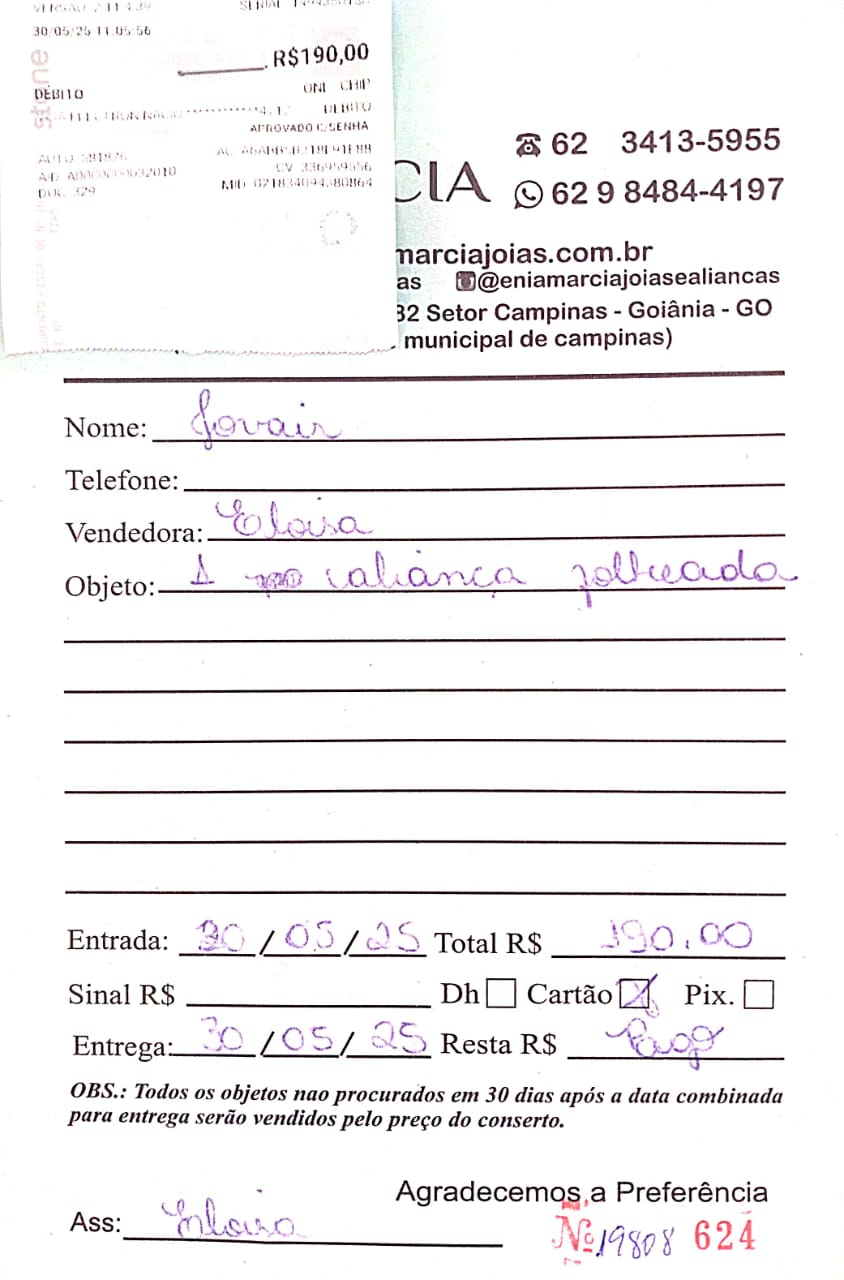 VERSAO 2.11.4.39 SERIAL
30/05/25 11:05:56
R$190,00
DÉBITO ONL CHIP
DEBITO
APROVADO C/SENHA
AUTO: 581826
CV: 336959556
DOC: 329 MID: 021834094380864
stone
CIA
62 3413-5955
62 9 8484-4197
marciajoias.com.br
as @eniamarciajoiasealiancas
32 Setor Campinas - Goiânia - GO
municipal de campinas)
Nome: Jovair
Telefone:
Vendedora: Eloisa
Objeto: 1 aliança
Entrada: 30/05/25 Total R$ 190,00
Sinal R$ Dh Cartão X Pix.
Entrega: 30/05/25 Resta R$ Pago
OBS.: Todos os objetos nao procurados em 30 dias após a data combinada
para entrega serão vendidos pelo preço do conserto.
Agradecemos a Preferência
Ass: Eloisa
Nº 19808 624